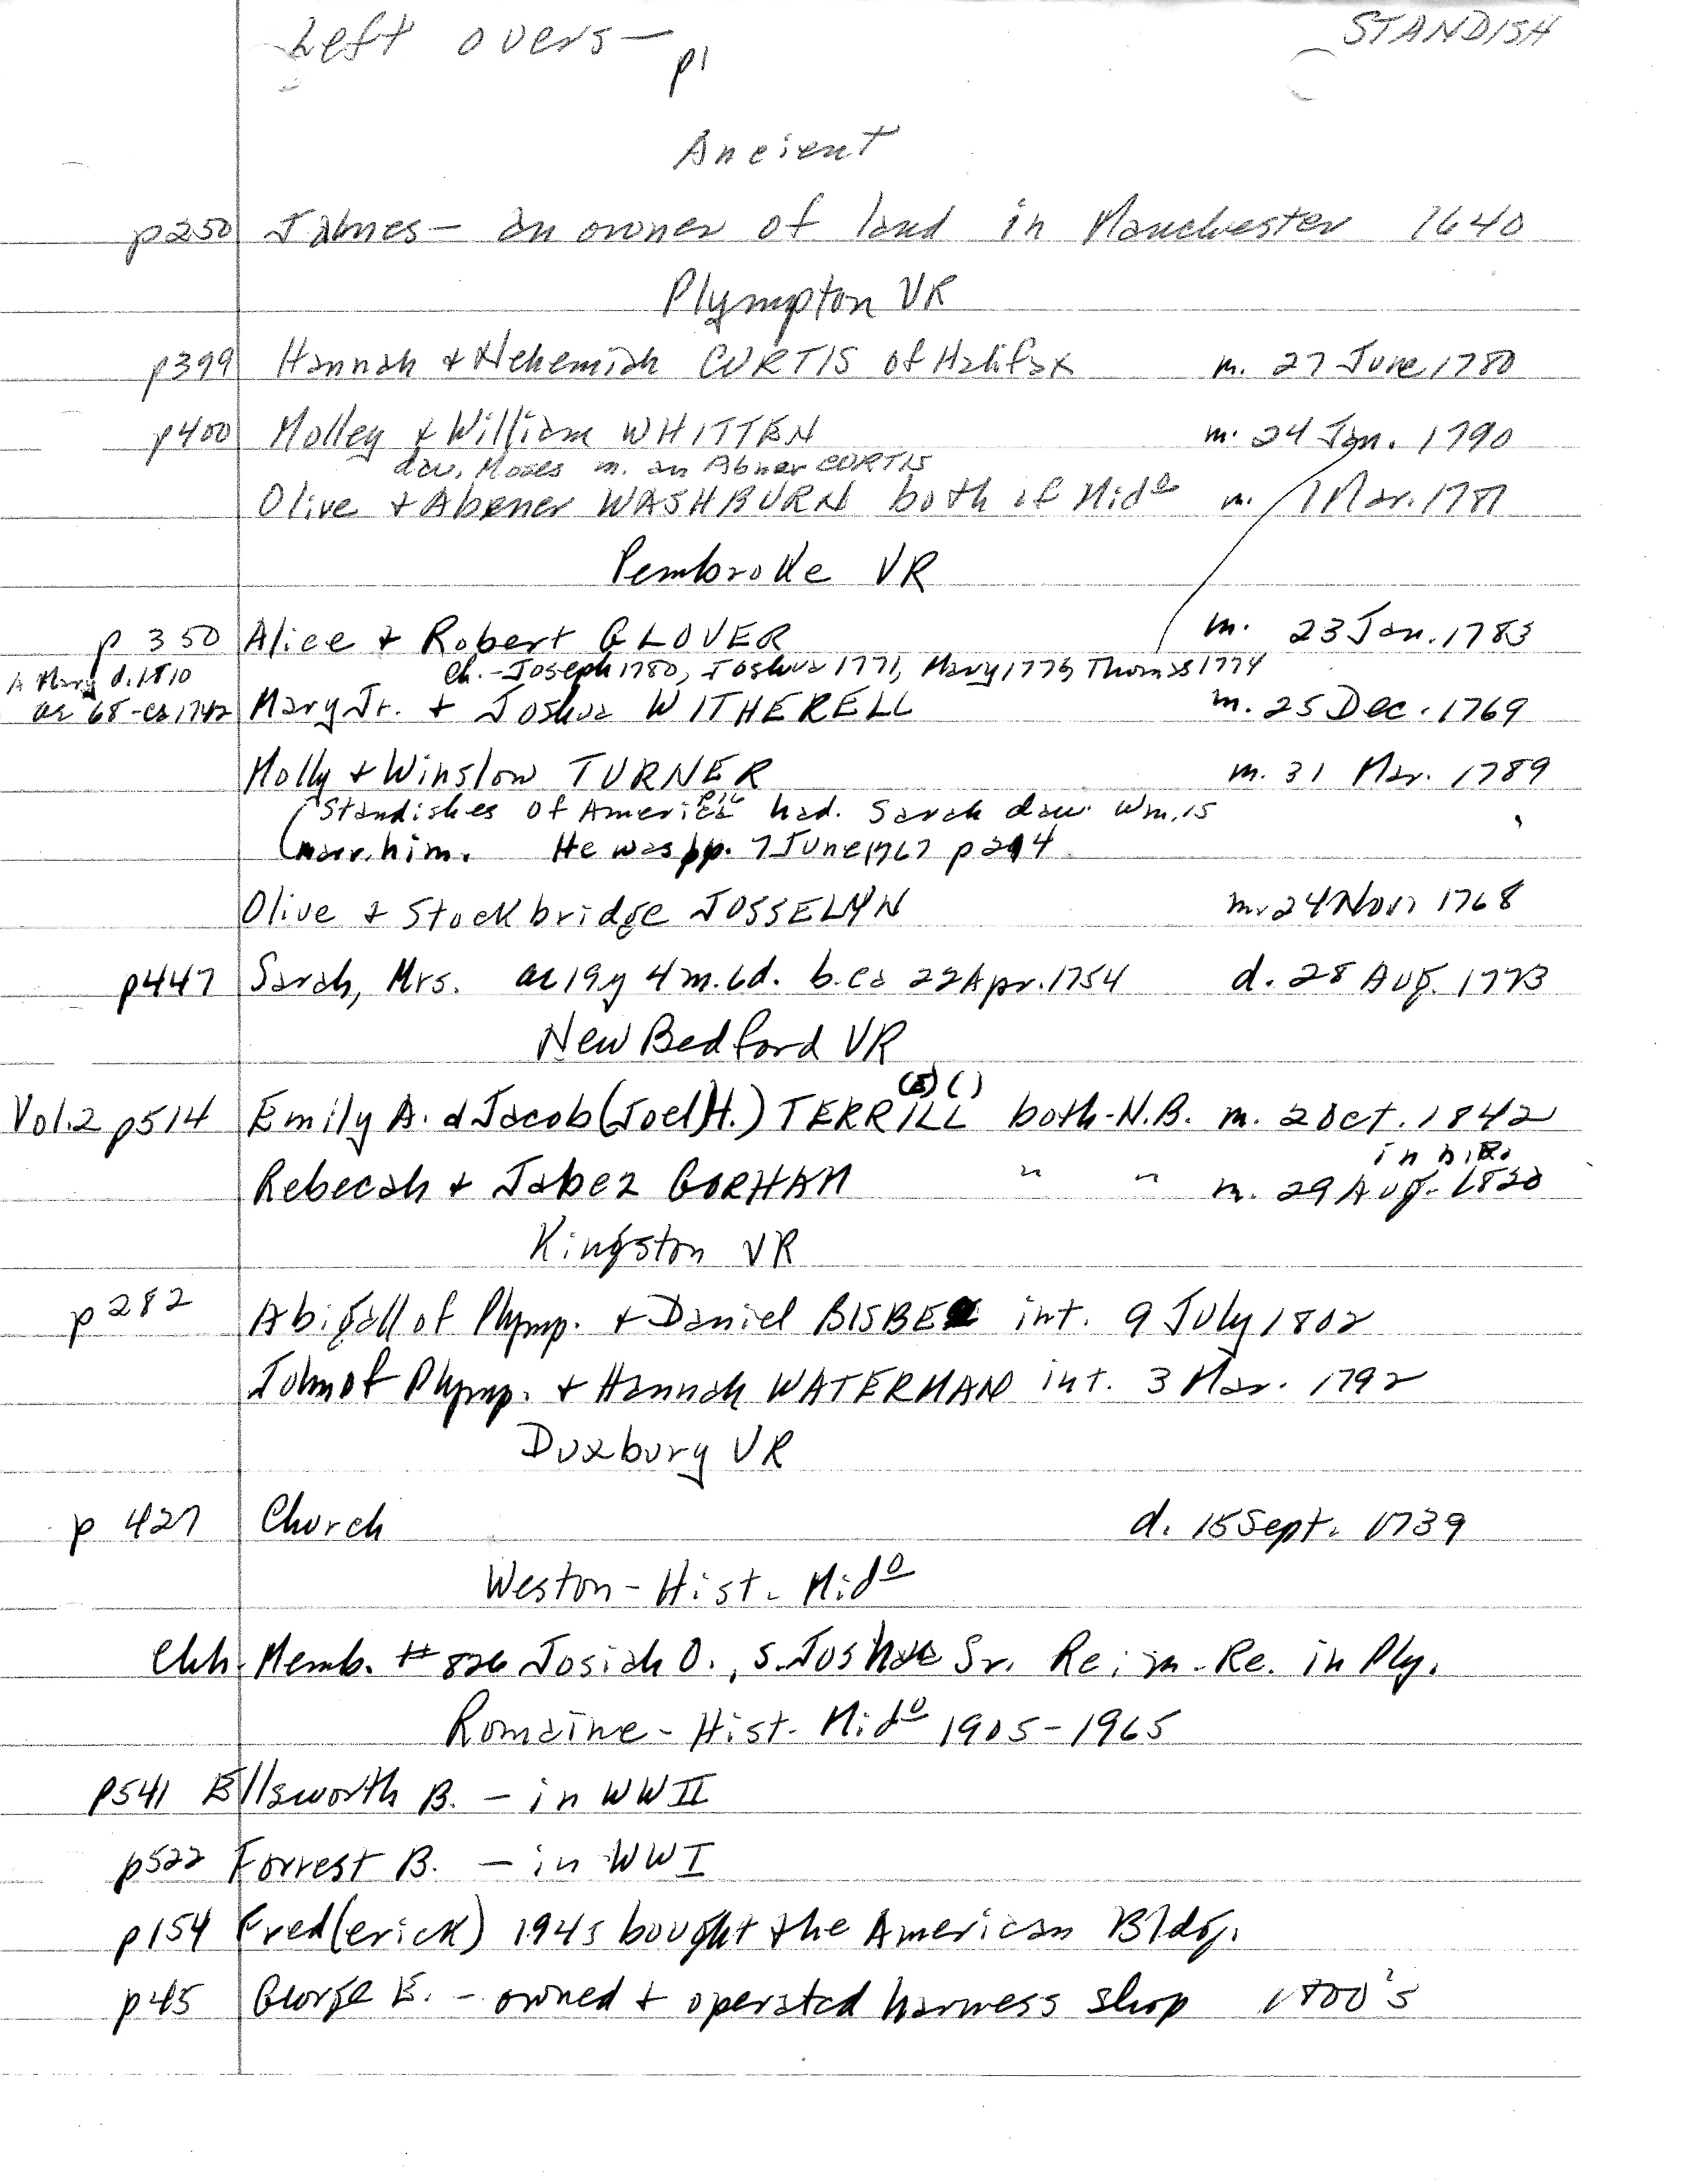 Left overs — STANDISH
p1
Ancient
p250 James — an owner of land in Manchester 1640
Plympton VR
p399 Hannah + Nehemiah CURTIS of Halifax m. 27 June 1780
p400 Molley + William WHITTEN m. 24 Jan. 1790
dau. Moses m. an Abner CURTIS
Olive + Abener WASHBURN both of Mid⁰ m. 1 Mar. 1787
Pembroke VR
p 350 Alice + Robert GLOVER m. 23 Jan. 1783
A Mary d. 1810 ch. - Joseph 1780, Joshua 1771, Mary 1775, Thomas 1774
ae 68 - ca 1742 Mary Jr. + Joshua WITHERELL m. 25 Dec. 1769
Molly + Winslow TURNER m. 31 Mar. 1789
(Standishes of America p16 had. Sarah dau. Wm. 15
marr. him. He was bp. 7 June 1767 p 214
Olive + Stockbridge JOSSELYN m. 24 Nov. 1768
p447 Sarah, Mrs. ae 19y 4m. 6d. b. ca 22 Apr. 1754 d. 28 Aug. 1773
New Bedford VR
(E) ( )
Vol. 2 p514 Emily A. + Jacob (Joel H.) TERRILL both - N.B. m. 2 Oct. 1842
in N.B.
Rebecah + Jabez GORHAM " " m. 29 Aug. 1820
Kingston VR
p 282 Abigall of Plymp. + Daniel BISBEE int. 9 July 1802
John of Plymp. + Hannah WATERMAN int. 3 Mar. 1792
Duxbury VR
p 427 Church d. 15 Sept. 1739
Weston - Hist. Mid⁰
Chh. Memb. # 826 Josiah O., s. Joshua Sr. Re; m. Re. in Ply.
Romaine - Hist. Mid⁰ 1905-1965
p541 Ellsworth B. — in WW II
p522 Forrest B. — in WW I
p154 Fred(erick) 1945 bought the American Bldg.
p45 George E. - owned + operated harness shop 1800's